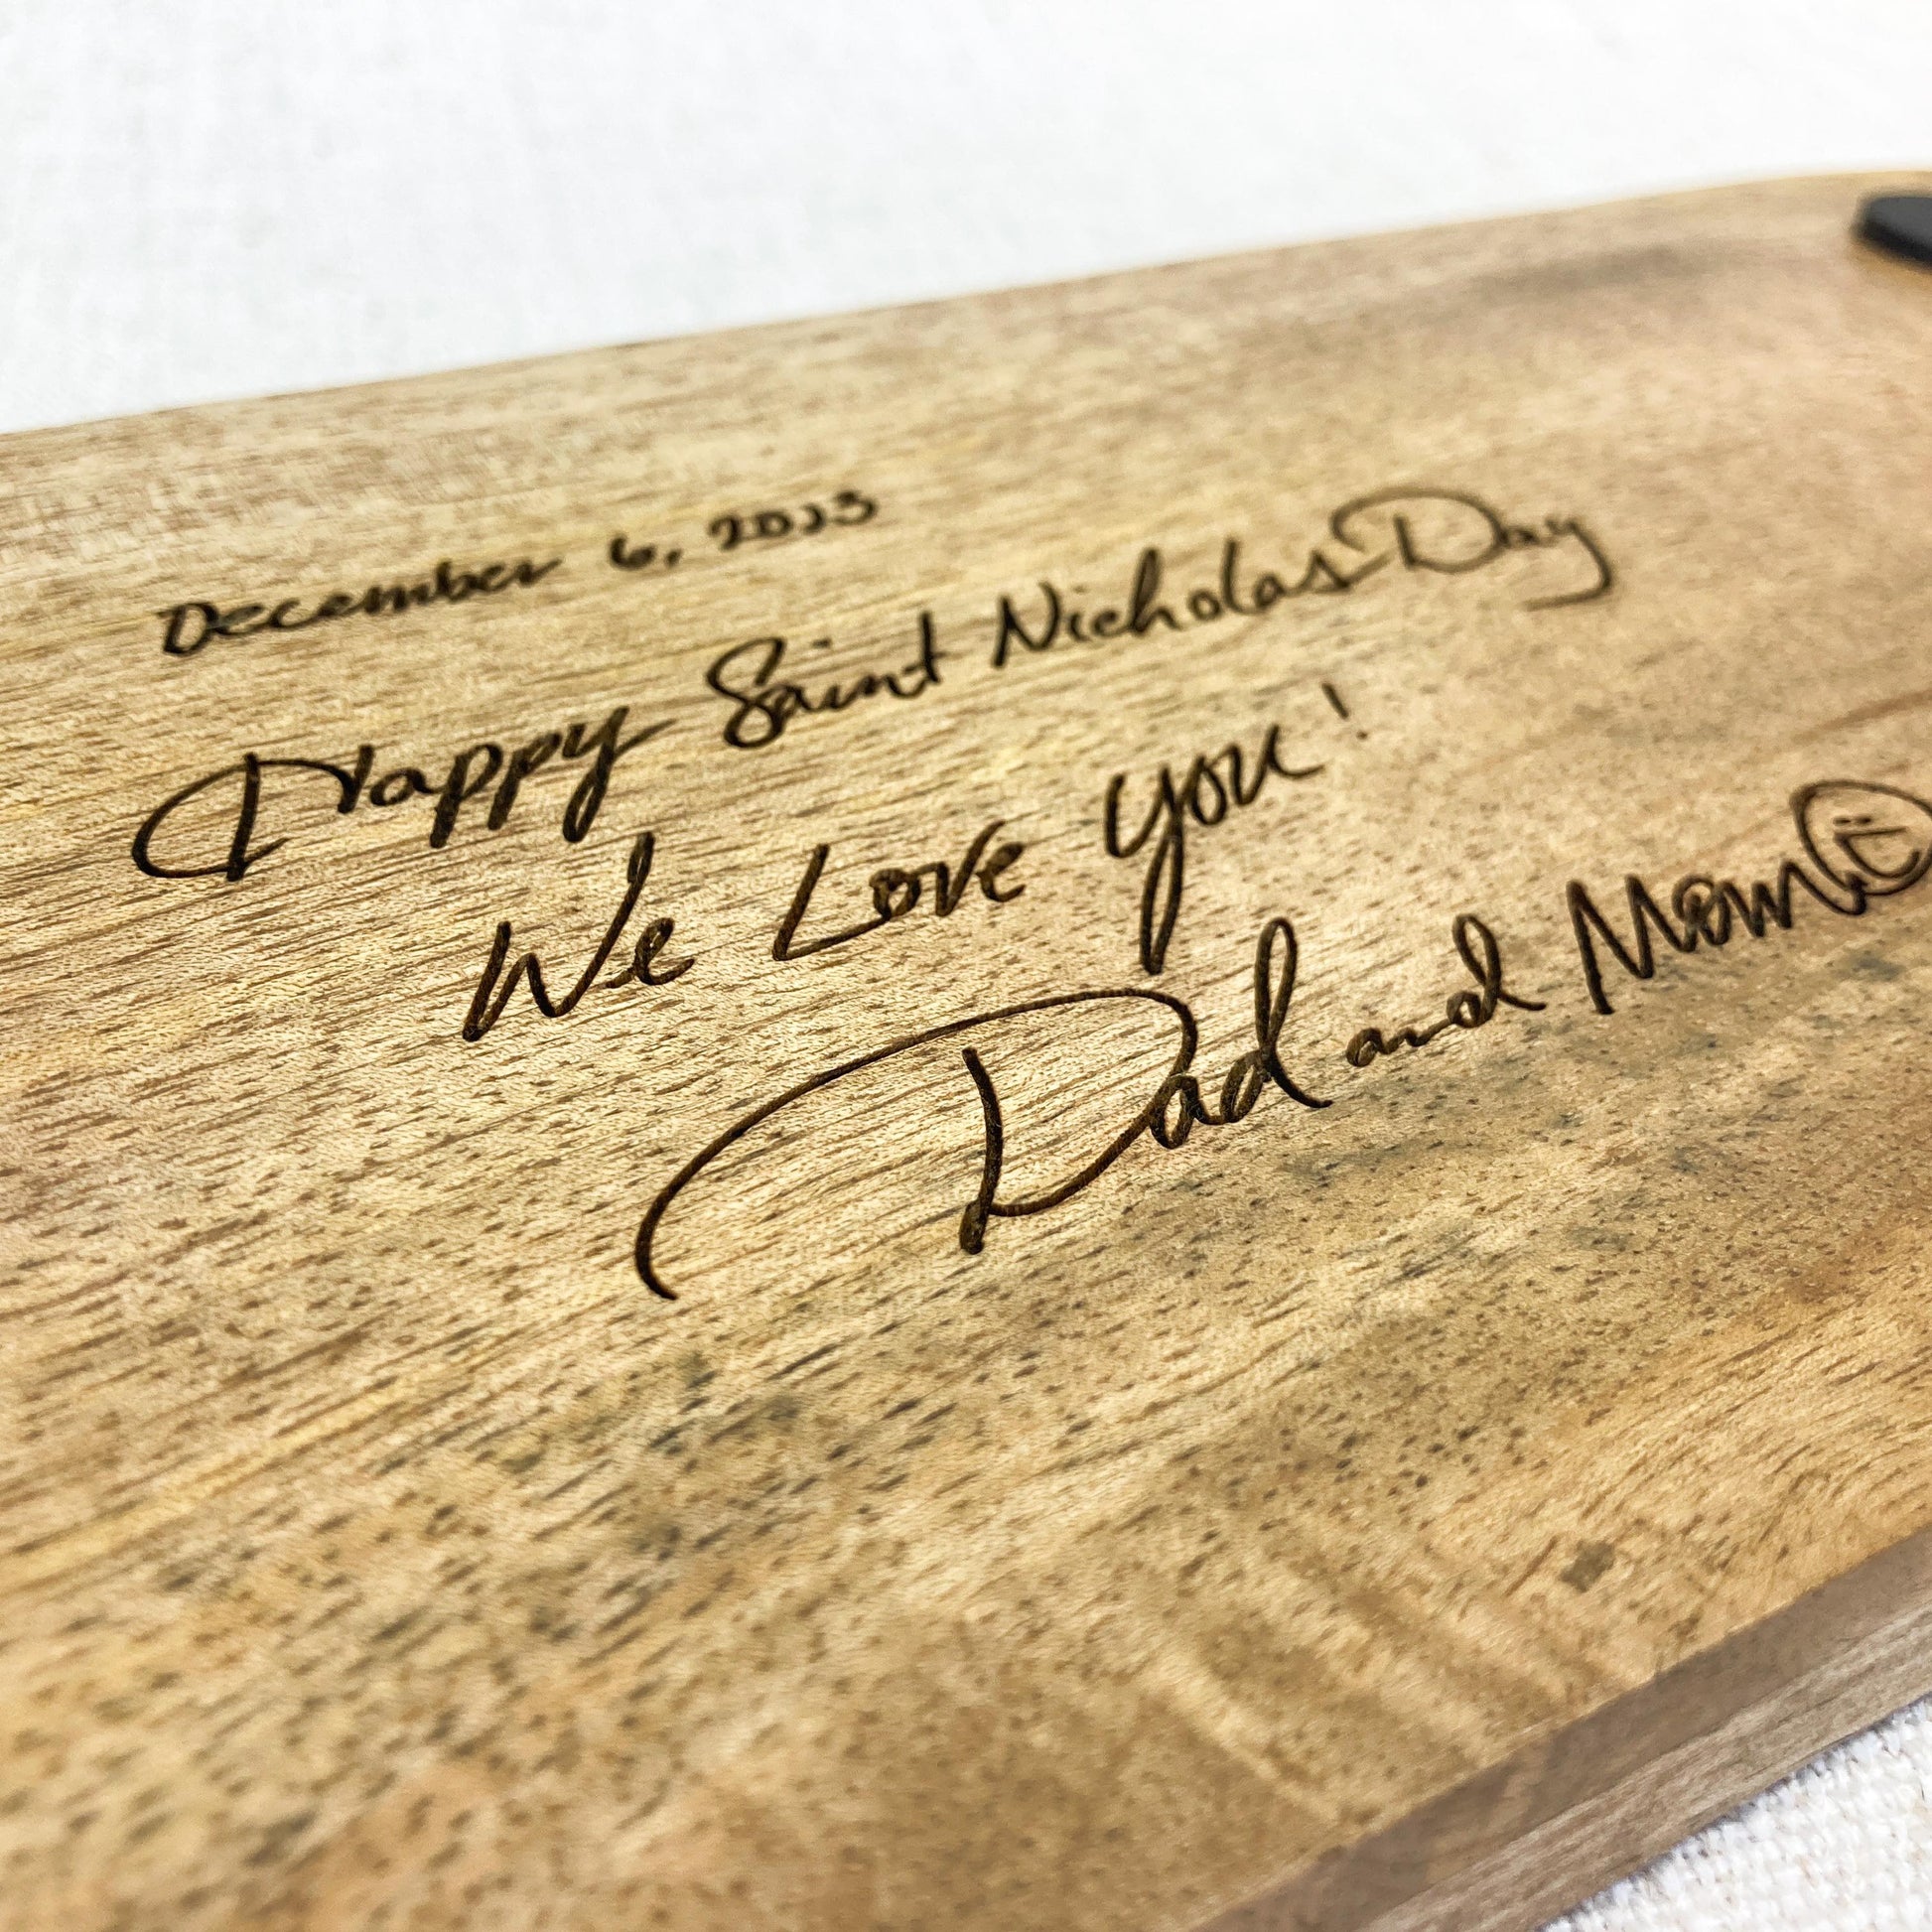 December 6, 2023
Happy Saint Nicholas Day
We Love you!
Dad and Mom